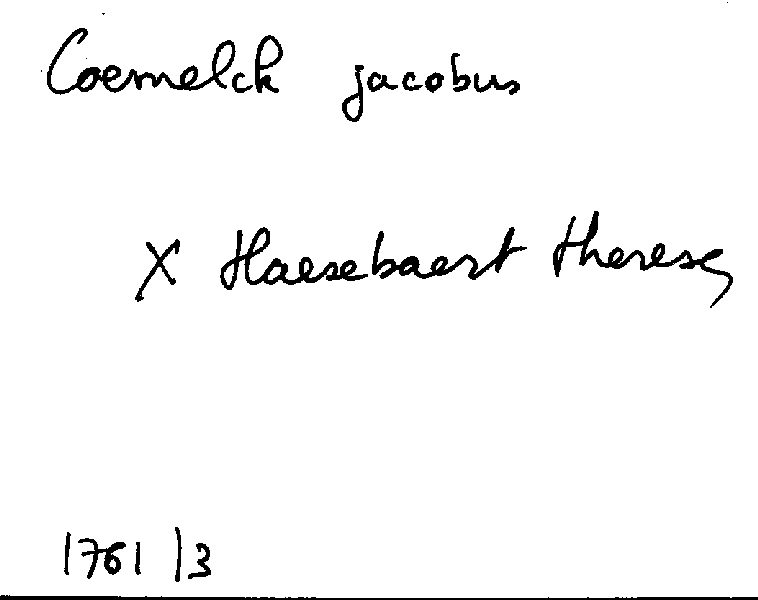 Coemelck jacobus
X Haesebaert therese
1761 /3